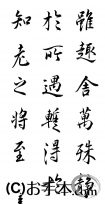 雖趣舍萬殊静
於所遇蹔得於
知老之將至
(C)お手本.com